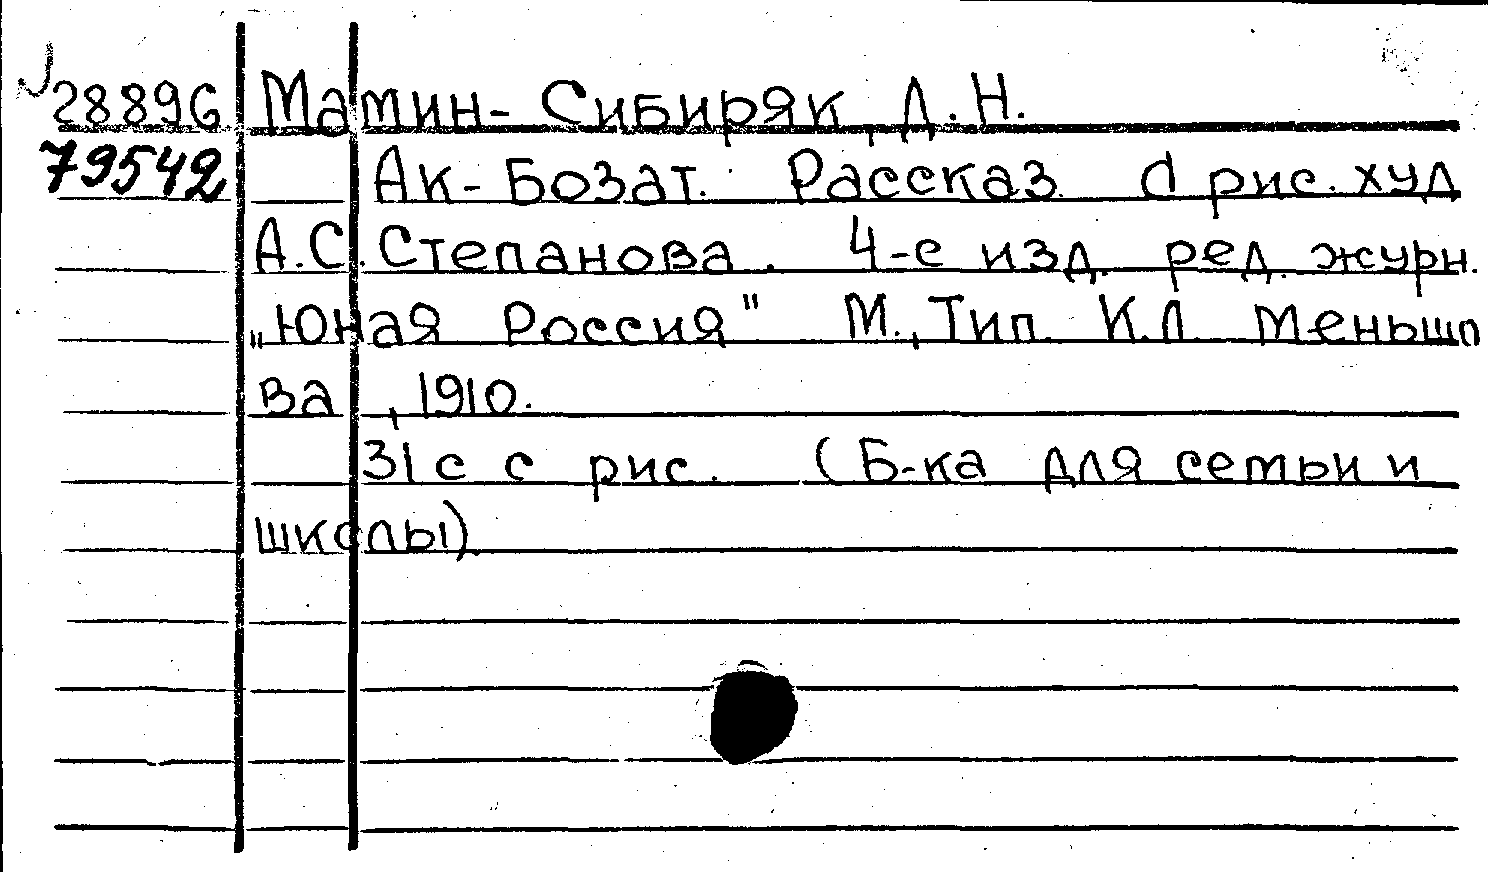 28896 Мамин-Сибиряк, Д.Н.
79542 Ак-Бозат. Рассказ. С рис. худ
А.С. Степанова. 4-е изд. ред. журн.
„Юная Россия" М., Тип. К.Л. Меньшо
ва, 1910.
31 с с рис. (Б-ка для семьи и
школы).